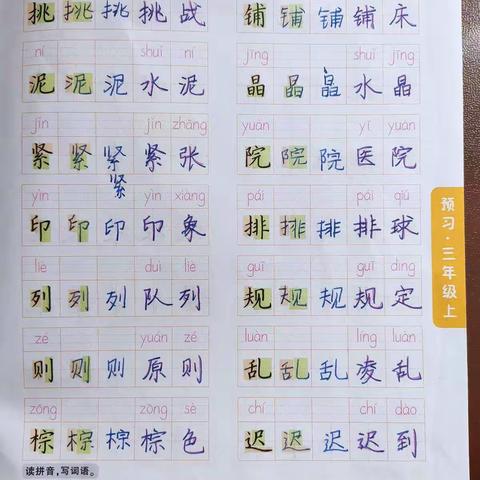 挑 挑 挑 挑 战
铺 铺 铺 铺 床
ní shuǐ ní
泥 泥 泥 水 泥
jīng shuǐ jīng
晶 晶 晶 水 晶
jǐn jǐn zhāng
紧 紧 紧 紧 张
紧
yuàn yī yuàn
院 院 院 医 院
yìn yìn xiàng
印 印 印 印 象
pái pái qiú
排 排 排 排 球
liè duì liè
列 列 列 队 列
guī guī dìng
规 规 规 规 定
zé yuán zé
则 则 则 原 则
luàn líng luàn
乱 乱 乱 凌 乱
zōng zōng sè
棕 棕 棕 棕 色
chí chí dào
迟 迟 迟 迟 到
读拼音,写词语。
预习·三年级上